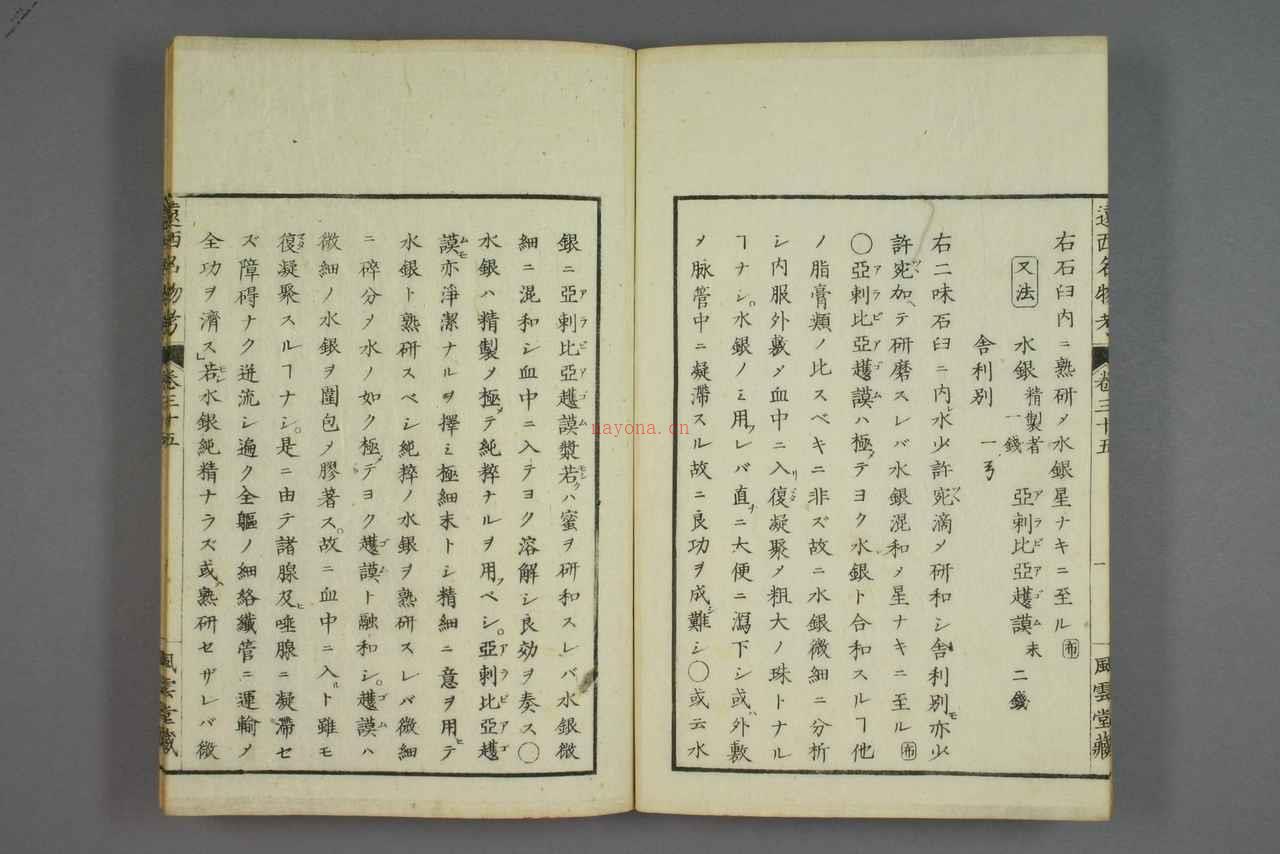 遠西名物考 卷三十五 一 風雲堂藏
右石臼内ニ熟研メ水銀星ナキニ至ル 布
又法 水銀 精製者一錢 亞剌比亞䕶謨 末 二錢
舎利別 一
右二味石臼ニ内レ水少許宛滴メ研和シ舎利別亦少
許宛加ヘテ研磨スレバ水銀混和メ星ナキニ至ル 布
〇亞剌比亞䕶謨ハ極テヨク水銀ト合和スルヿ他
ノ脂膏類ノ比スベキニ非ズ故ニ水銀微細ニ分析
シ内服外敷メ血中ニ入リ復凝聚メ粗大ノ珠トナル
ヿナシ。水銀ノミ用フレバ直ニ大便ニ瀉下シ或ハ外敷
メ脉管中ニ凝滯スル故ニ良功ヲ成シ難シ〇或云水
銀ニ亞剌比亞䕶謨漿若クハ蜜ヲ研和スレバ水銀微
細ニ混和シ血中ニ入テヨク溶解シ良効ヲ奏ス〇
水銀ハ精製メ極テ純粹ナルヲ用フベシ。亞剌比亞䕶
謨亦淨潔ナルヲ擇ミ極細末トシ精細ニ意ヲ用ヒテ
水銀ト熟研スベシ純粹ノ水銀ヲ熟研スレバ微細
ニ碎分メ水ノ如ク極テヨク䕶謨ト融和シ。䕶謨ハ
微細ノ水銀ヲ圍包メ膠著ス。故ニ血中ニ入ルト雖モ
復凝聚スルヿナシ。是ニ由テ諸腺及ヒ唾腺ニ凝滯セ
ズ障碍ナク迸流シ遍ク全軀ノ細絡纖管ニ運輸メ
全功ヲ濟ス」若水銀純精ナラズ或ハ熟研セザレバ微
遠西名物考 卷三十五 風雲堂藏
nayona.cn